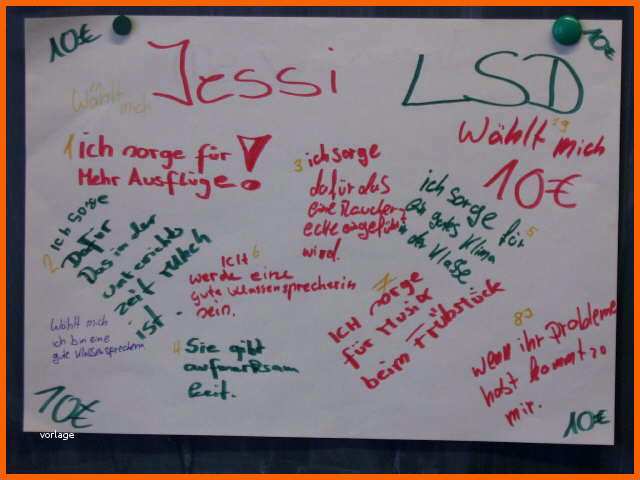 10€
10€
Jessi LSD
Wählt
mich
Wählt mich
10€
1 ich sorge für
Mehr Ausflüge!
2 ich sorge
Dafür
Das in der
unterichts
zeit
ist.
3 ich sorge
dafür das
eine Raucher-
ecke
wird.
ich sorge für 5
ein gutes Klima
in der Klasse
ICH 6
werde eine
gute Klassensprecherin
sein.
7
ICH sorge
für Musik
beim Frühstück
Wählt mich
ich bin eine
gute Klassensprecherin
4 Sie gibt
aufmerksam
keit.
8
wenn ihr Probleme
habt kommt zu
mir.
10€
10€
vorlage